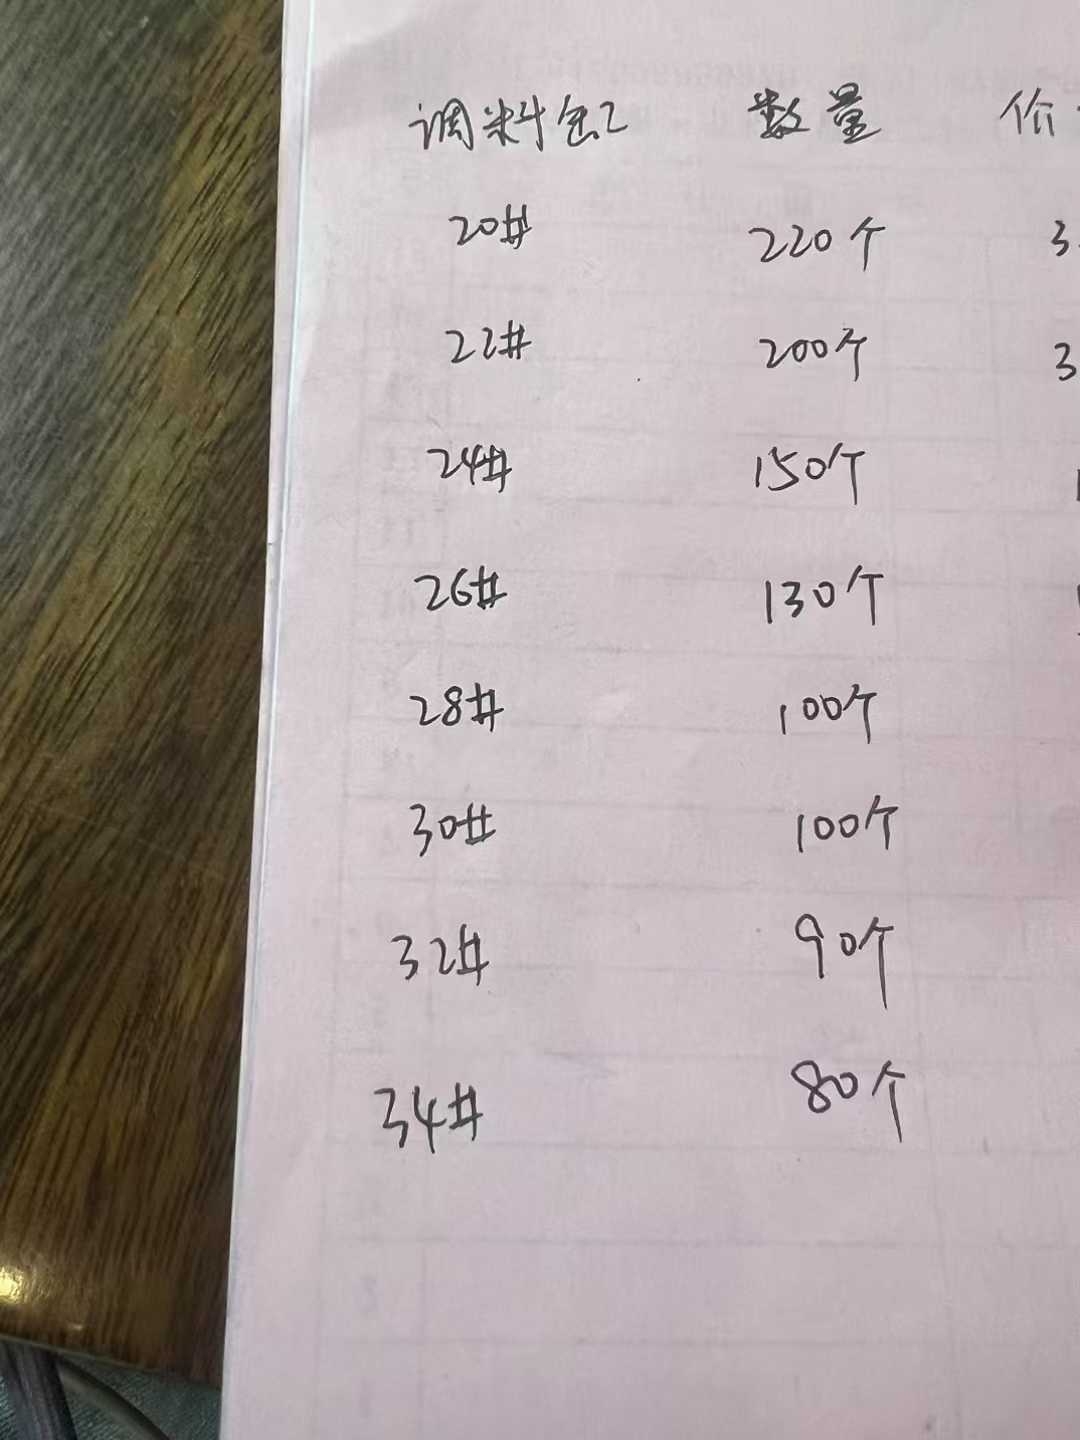 调料包2 数量 价
20# 220个 3
22# 200个 3
24# 150个 1
26# 130个 1
28# 100个
30# 100个
32# 90个
34# 80个